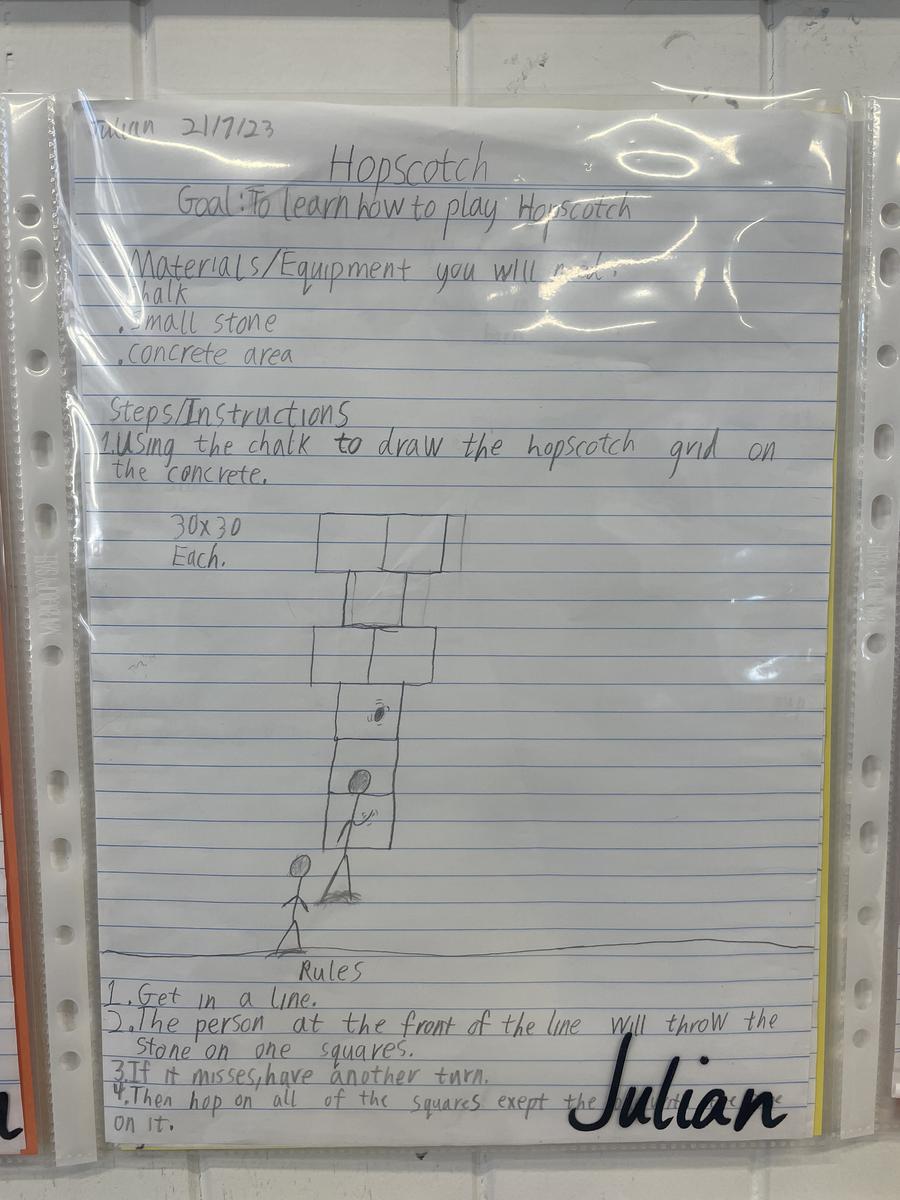 Julian 21/7/23
Hopscotch
Goal: To learn how to play Hopscotch
Materials/Equipment you will need:
chalk
. Small stone
. concrete area
Steps/Instructions
1. Using the chalk to draw the hopscotch grid on
the concrete.
30x30
Each.
Rules
1. Get in a line.
2. The person at the front of the line will throw the
stone on one squares.
3. If it misses, have another turn.
4. Then hop on all of the squares exept the
on it.
Julian